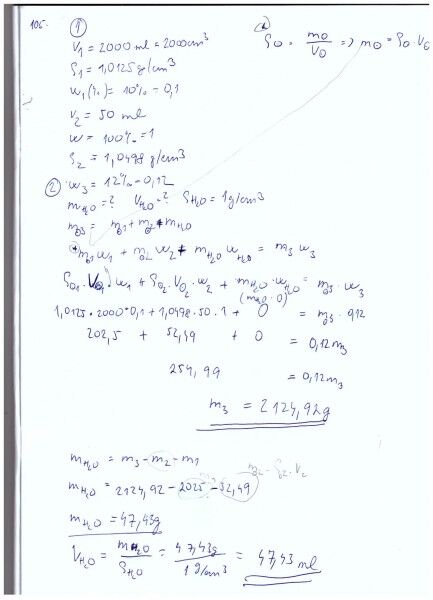 105. ①
V₁ = 2000 ml = 2000 cm³
ρ₁ = 1,0125 g/cm³
w₁(%) = 10% = 0,1
V₂ = 50 ml
w = 100% = 1
ρ₂ = 1,0498 g/cm³
ρ₀ = m₀/V₀ => m₀ = ρ₀ · V₀
② w₃ = 12% = 0,12
mH₂O = ? VH₂O = ? ρH₂O = 1g/cm³
m₃ = m₁ + m₂ + mH₂O
m₁w₁ + m₂w₂ + mH₂O wH₂O = m₃ w₃
ρ₀₁ · V₀₁ · w₁ + ρ₀₂ · V₀₂ · w₂ + mH₂O · wH₂O = m₃ · w₃
(mH₂O · 0)
1,0125 · 2000 · 0,1 + 1,0498 · 50 · 1 + 0 = m₃ · 0,12
202,5 + 52,49 + 0 = 0,12m₃
254,99 = 0,12m₃
m₃ = 2124,92g
mH₂O = m₃ - m₂ - m₁
m₂ = ρ₂ · V₂
mH₂O = 2124,92 - 2025 - 52,49
mH₂O = 47,43g
VH₂O = mH₂O/ρH₂O = 47,43g/1 g/cm³ = 47,43 ml